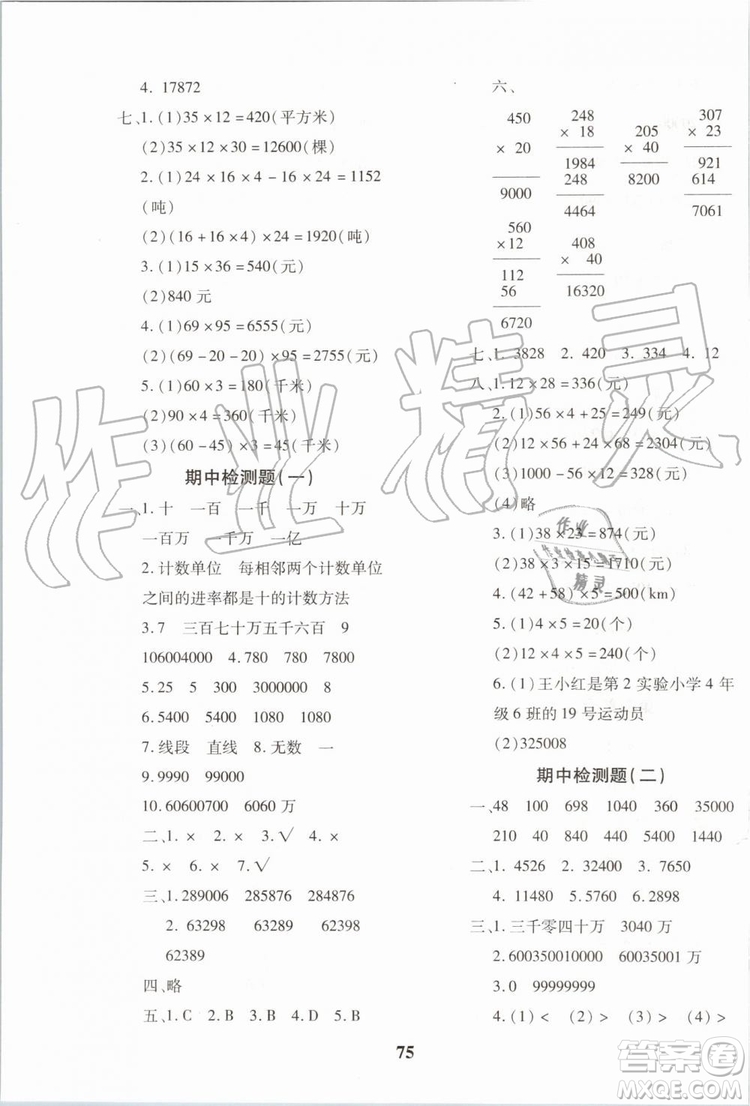 4. 17872
七、1. (1)35×12=420(平方米)
(2)35×12×30=12600(棵)
2. (1)24×16×4-16×24=1152
(吨)
(2)(16+16×4)×24=1920(吨)
3. (1)15×36=540(元)
(2)840 元
4. (1)69×95=6555(元)
(2)(69-20-20)×95=2755(元)
5. (1)60×3=180(千米)
(2)90×4=360(千米)
(3)(60-45)×3=45(千米)
期中检测题(一)
一、1. 十 一百 一千 一万 十万
一百万 一千万 一亿
2. 计数单位 每相邻两个计数单位
之间的进率都是十的计数方法
3.7 三百七十万五千六百 9
106004000 4.780 780 7800
5.25 5 3 3000000 8
6.5400 5400 1080 1080
7. 线段 直线 8. 无数 一
9.9990 99000
10.60600700 6060 万
二、1. × 2. × 3. √ 4. ×
5. × 6. × 7. √ 8. ×
三、1.289006 285876 284876
2. 63298 63289 62398
62389
四、略
五、1. C 2. B 3. B 4. D 5. B
六、
450
× 20
9000
248
× 18
1984
248
4464
205
× 40
8200
307
× 23
921
614
7061
560
×12
112
56
6720
408
× 40
16320
七、1. 3828 2. 420 3. 334 4. 12
八、1.12×28=336(元)
2. (1)56×4+25=249(元)
(2)12×56+24×68=2304(元)
(3)1000-56×12=328(元)
(4)略
3. (1)38×23=874(元)
(2)38×3×15=1710(元)
4. (42+58)×5=500(km)
5. (1)4×5=20(个)
(2)12×4×5=240(个)
6. (1)王小红是第 2 实验小学 4 年
级 6 班的 19 号运动员
(2)325008
期中检测题(二)
一、48 100 698 1040 360 35000
210 40 840 440 5400 1440
二、1. 4526 2. 32400 3. 7650
4. 11480 5.5760 6.2898
三、1. 三千零四十万 3040 万
2.600350010000 60035001 万
3.0 99999999
4. (1)< (2)> (3)> (4)>
75
作业精灵
作业
精灵
答案圈
MXQE.COM